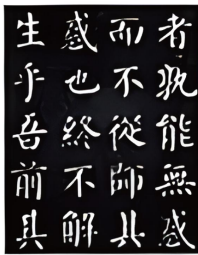 者孰能無惑
而不從師其
惑也終不解
生乎吾前其